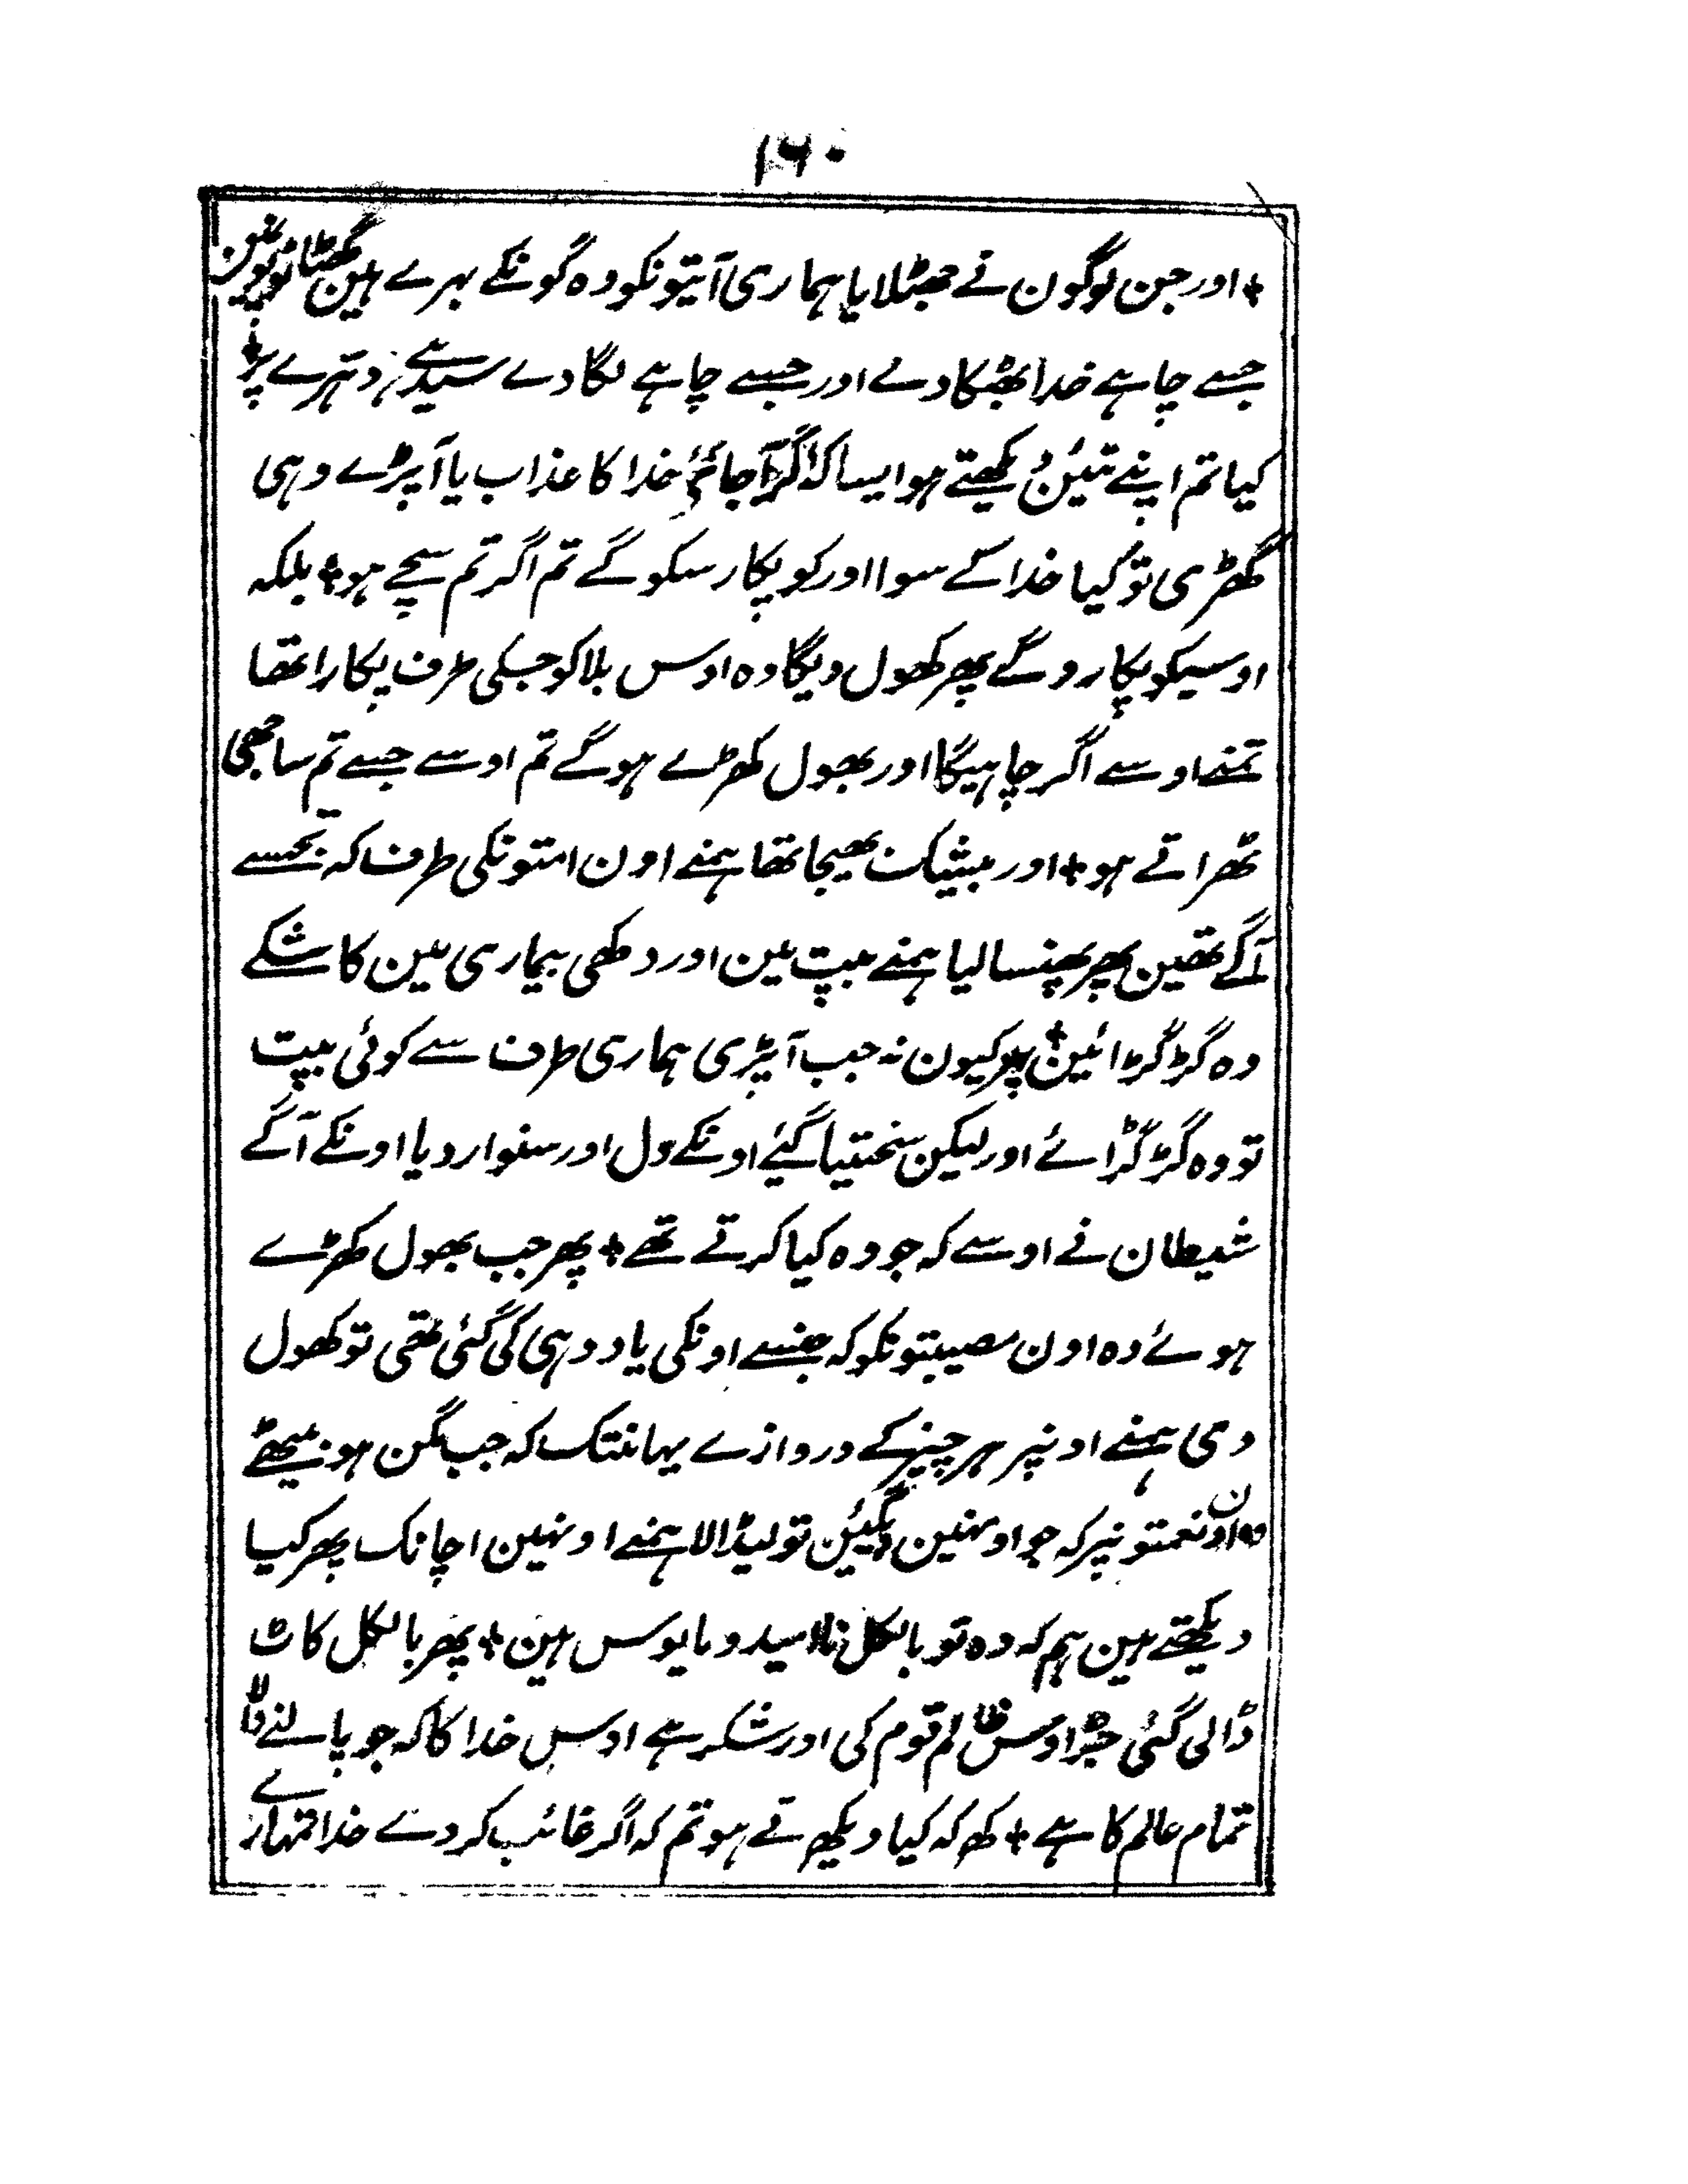 ۱۶۰
+ اور جن لوگون نے جھٹلایا ہماری آیتونکو وہ گونگے بہرے ہین گھٹا ٹوپونمین
جسے چاہے خدا بھٹکا دے اور جسے چاہے لگا دے سیدھے دہرے پر +
کیا تم اپنے تئین دیکھتے ہو ایسا کہ اگر آجائے خدا کا عذاب یا آپڑے وہی
گھڑی تو کیا خدا کے سوا اور کو پکار سکو گے تم اگر تم سچے ہو + بلکہ
اوسیکو پکارو گے پھر کھول دیگا وہ اوس بلا کو جسکی طرف پکارا تھا
تمنے اوسے اگر چاہیگا اور بھول کھڑے ہو گے تم اوسے جسے تم ساجھی
ٹھراتے ہو + اور بیشک بھیجا تھا ہمنے اون امتونکی طرف کہ تجھسے
آگے تھین پھر پھنسا لیا ہمنے بپت مین اور دکھی بیماری مین کاشکے
وہ گڑگڑائین + پھر کیون نہ جب آپڑی ہماری طرف سے کوئی بپت
تو وہ گڑگڑائے اور لیکن سختیا گئے اونکے دل اور سنوار دیا اونکے آگے
شیطان نے اوسے کہ جو وہ کیا کرتے تھے + پھر جب بھول کھڑے
ہوئے وہ اون مصیبتونکو کہ جنسے اونکی یاد دہی کی گئی تھی تو کھول
دی ہمنے اونپر ہر چیز کے دروازے یہانتک کہ جب مگن ہو بیٹھے
وہ اون نعمتونپر کہ جو اونہین دیگئین تو لیڈالا ہمنے اونہین اچانک پھر کیا
دیکھتے ہین ہم کہ وہ تو بالکل نا امید و مایوس ہین + پھر بالکل کاٹ
ڈالی گئی جڑ اوس ظالم قوم کی اور شکر ہے اوس خدا کا کہ جو پالنے والا
تمام عالم کا ہے + کھ کہ کیا دیکھتے ہو تم کہ اگر غائب کر دے خدا تمہارے